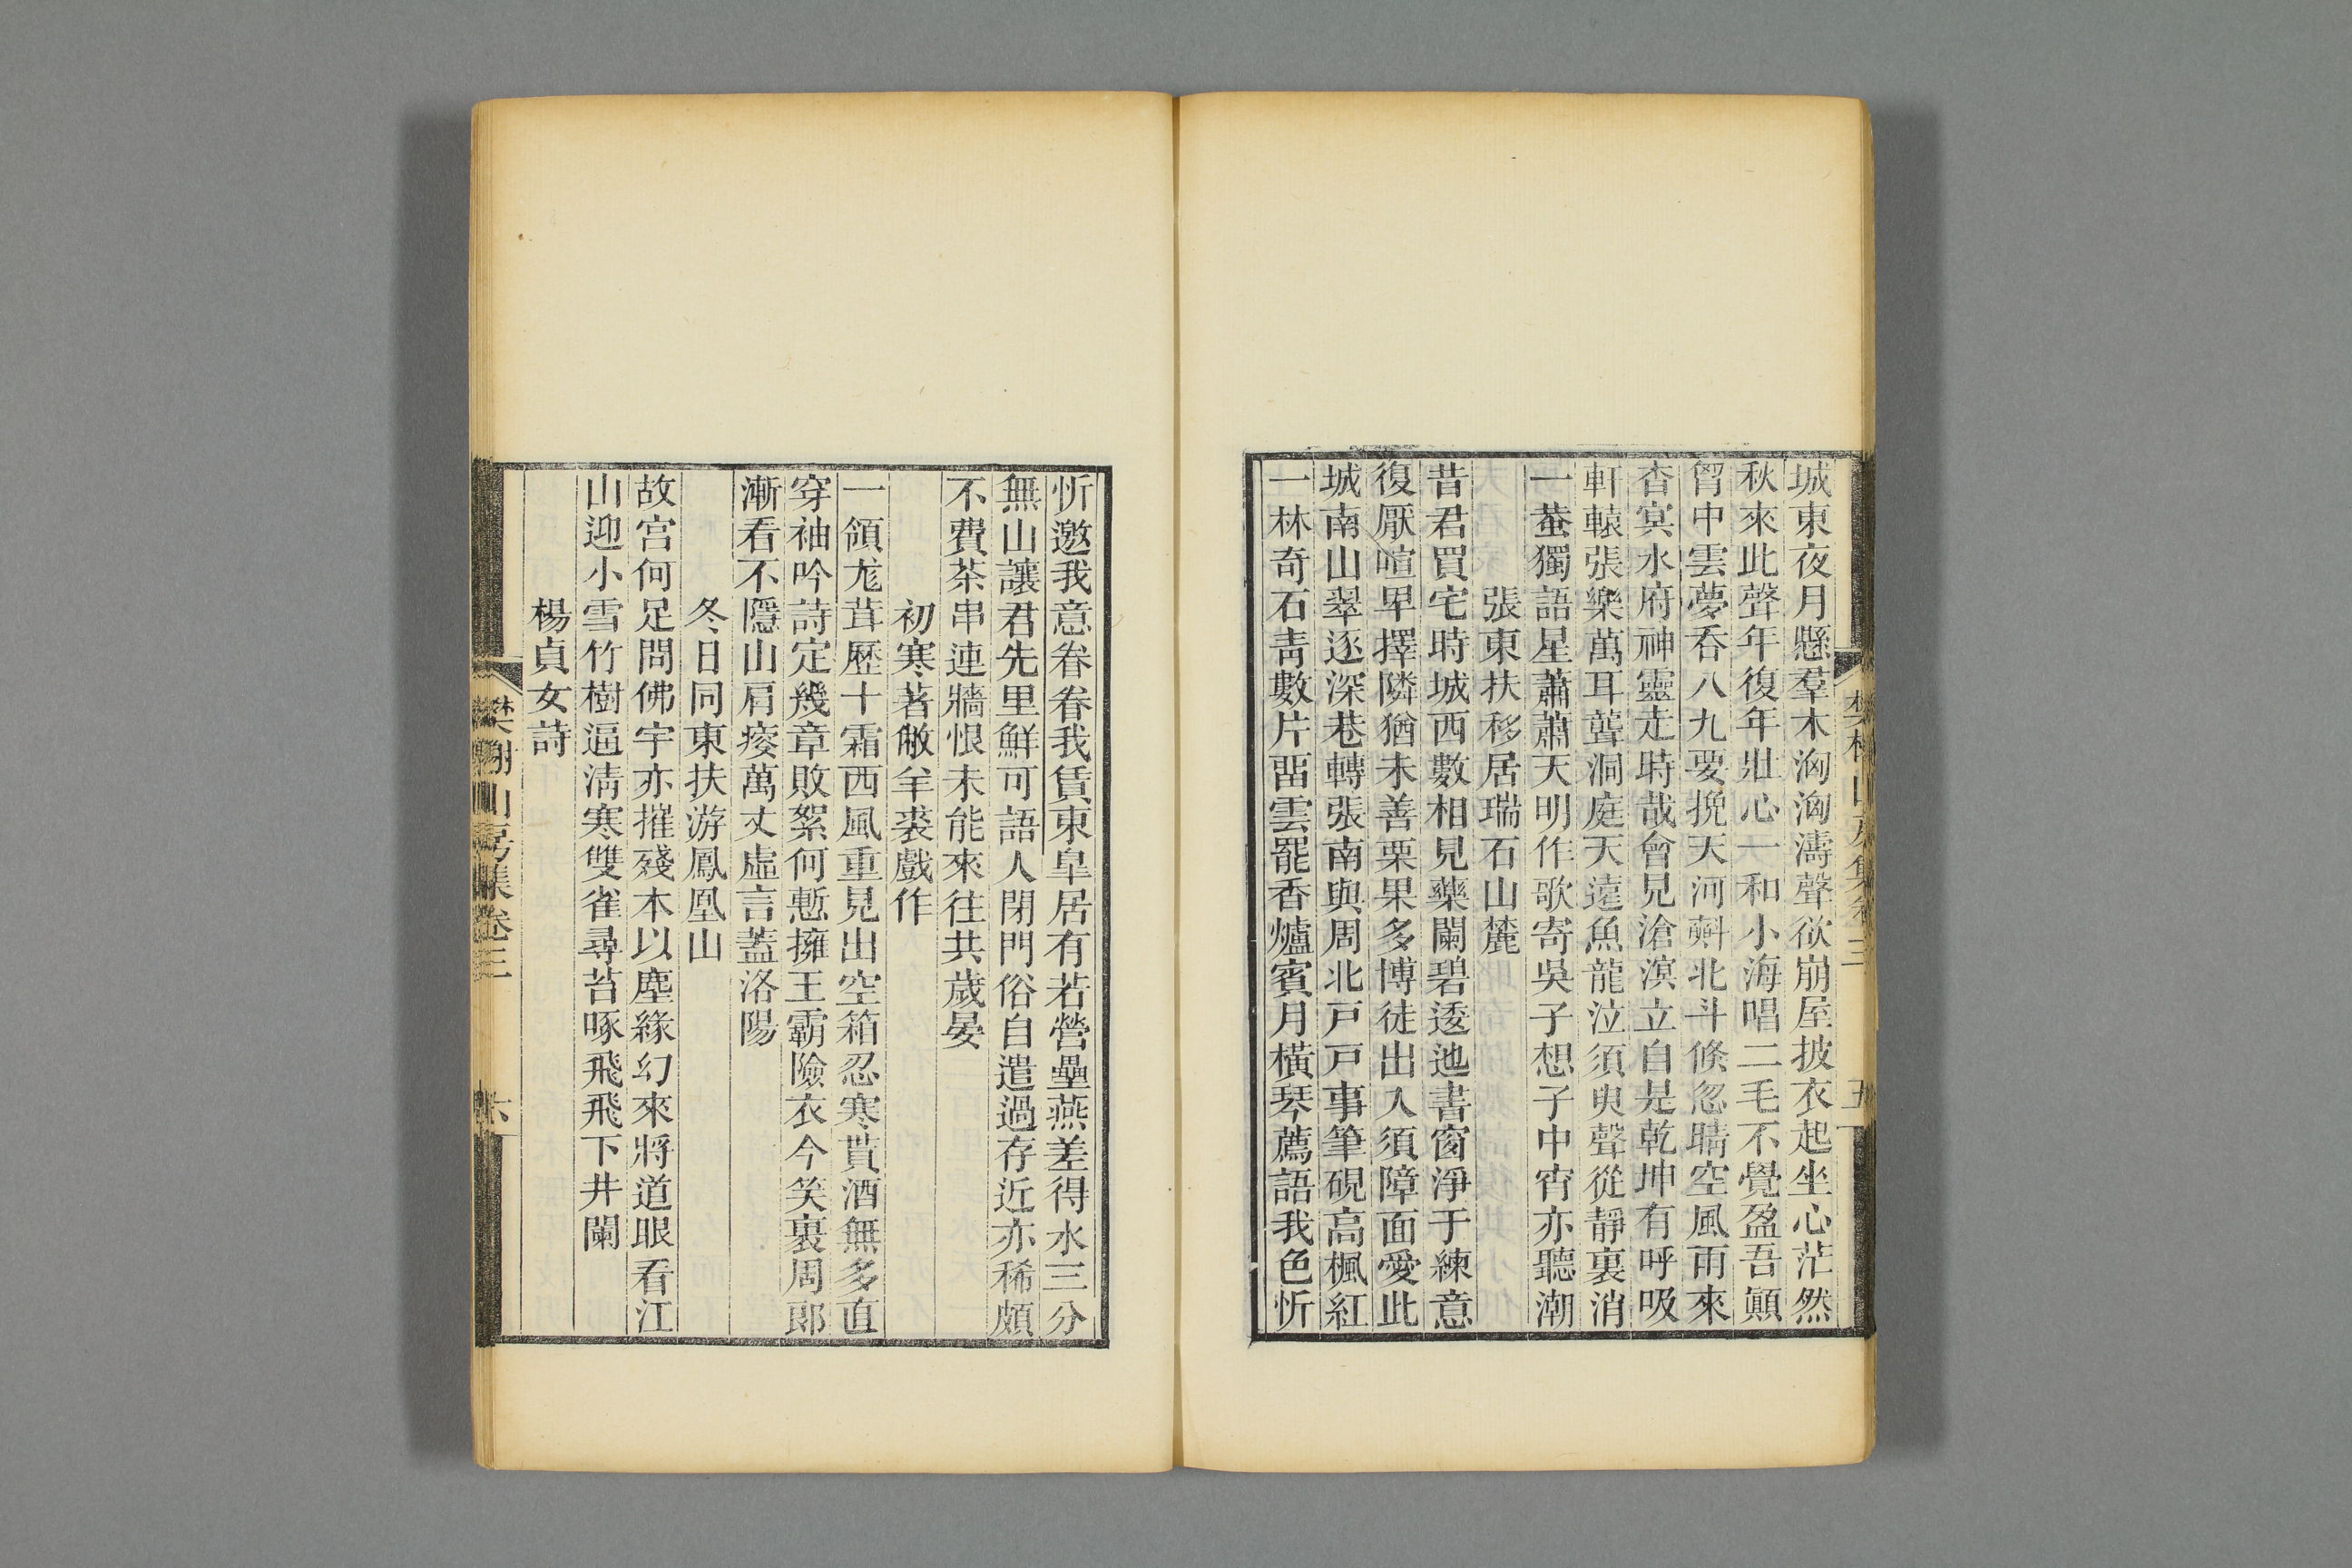 城東夜月懸羣木洶洶濤聲欲崩屋披衣起坐心茫然
秋來此聲年復年壯心一和小海唱二毛不覺盈吾顚
胷中雲夢呑八九要挽天河斟北斗倏忽晴空風雨來
杳冥水府神靈走時哉會見滄溟立自是乾坤有呼吸
軒轅張樂萬耳聾洞庭天遠魚龍泣須臾聲從靜裏消
一蛩獨語星蕭蕭天明作歌寄吳子想子中宵亦聽潮
張東扶移居瑞石山麓
昔君買宅時城西數相見藥闌碧逶迤書窗淨于練意
復厭喧卑擇隣猶未善栗果多博徒出入須障面愛此
城南山翠逐深巷轉張南與周北戸戸事筆硯高楓紅
一林奇石靑數片畱雲罷香爐賓月橫琴薦語我色忻
樊榭山房集卷三
五
忻邀我意眷眷我賃東臯居有若營壘燕差得水三分
無山讓君先里鮮可語人閉門俗自遣過存近亦稀頗
不費茶串連牆恨未能來往共歲晏
初寒著敝羊裘戲作
一領尨茸歷十霜西風重見出空箱忍寒貰酒無多直
穿袖吟詩定幾章敗絮何慙擁王霸險衣今笑裏周郞
漸看不隱山肩瘦萬丈虛言蓋洛陽
冬日同東扶游鳳凰山
故宮何足問佛宇亦摧殘本以塵緣幻來將道眼看江
山迎小雪竹樹逼淸寒雙雀尋苔啄飛飛下井闌
楊貞女詩
樊榭山房集卷三
六